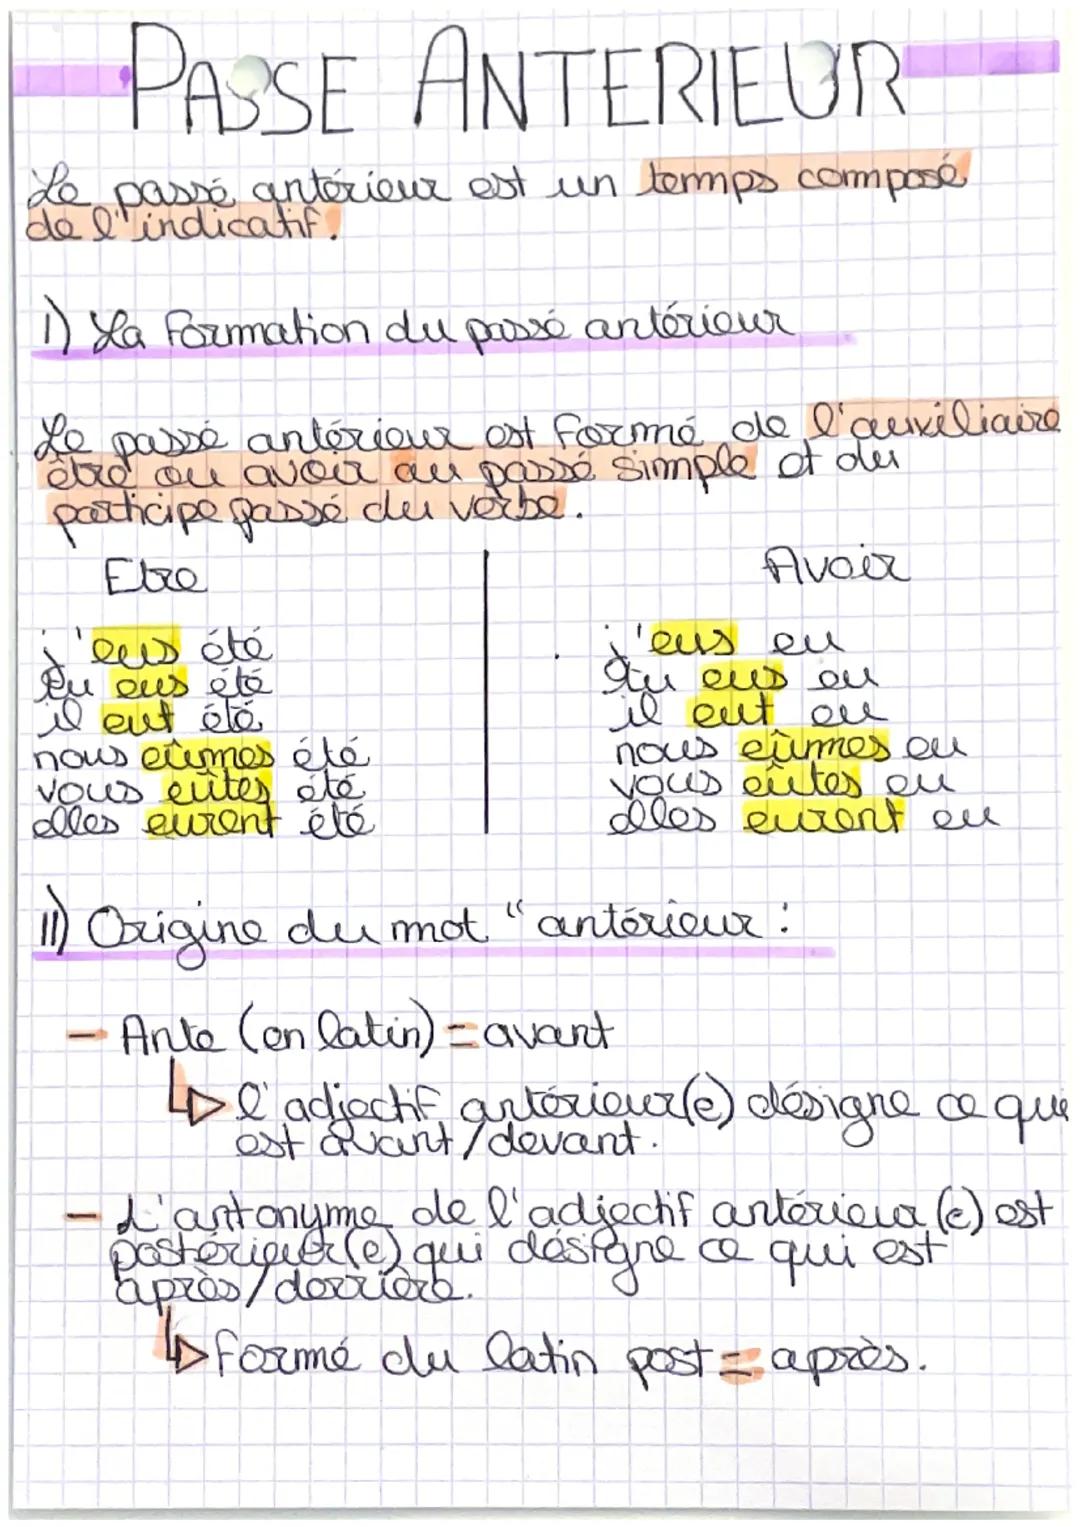 PASSE ANTERIEUR
Le passé antérieur est un temps composé
de l'indicatif.
I) La formation du passé antérieur
Le passé antérieur est formé de l'auxiliaire
être ou avoir au passé simple et du
participe passé du verbe.
Etre
Avoir
j'eus été
j'eus eu
tu eus été
tu eus eu
il eut été
il eut eu
nous eûmes été
nous eûmes eu
vous eûtes été
vous eûtes eu
elles eurent été
elles eurent eu
II) Origine du mot "antérieur :
- Ante (en latin) = avant
l'adjectif antérieur(e) désigne ce qui
est avant/devant.
- L'antonyme de l'adjectif antérieur(e) est
postérieur(e) qui désigne ce qui est
après/derrière.
formé du latin post = après.